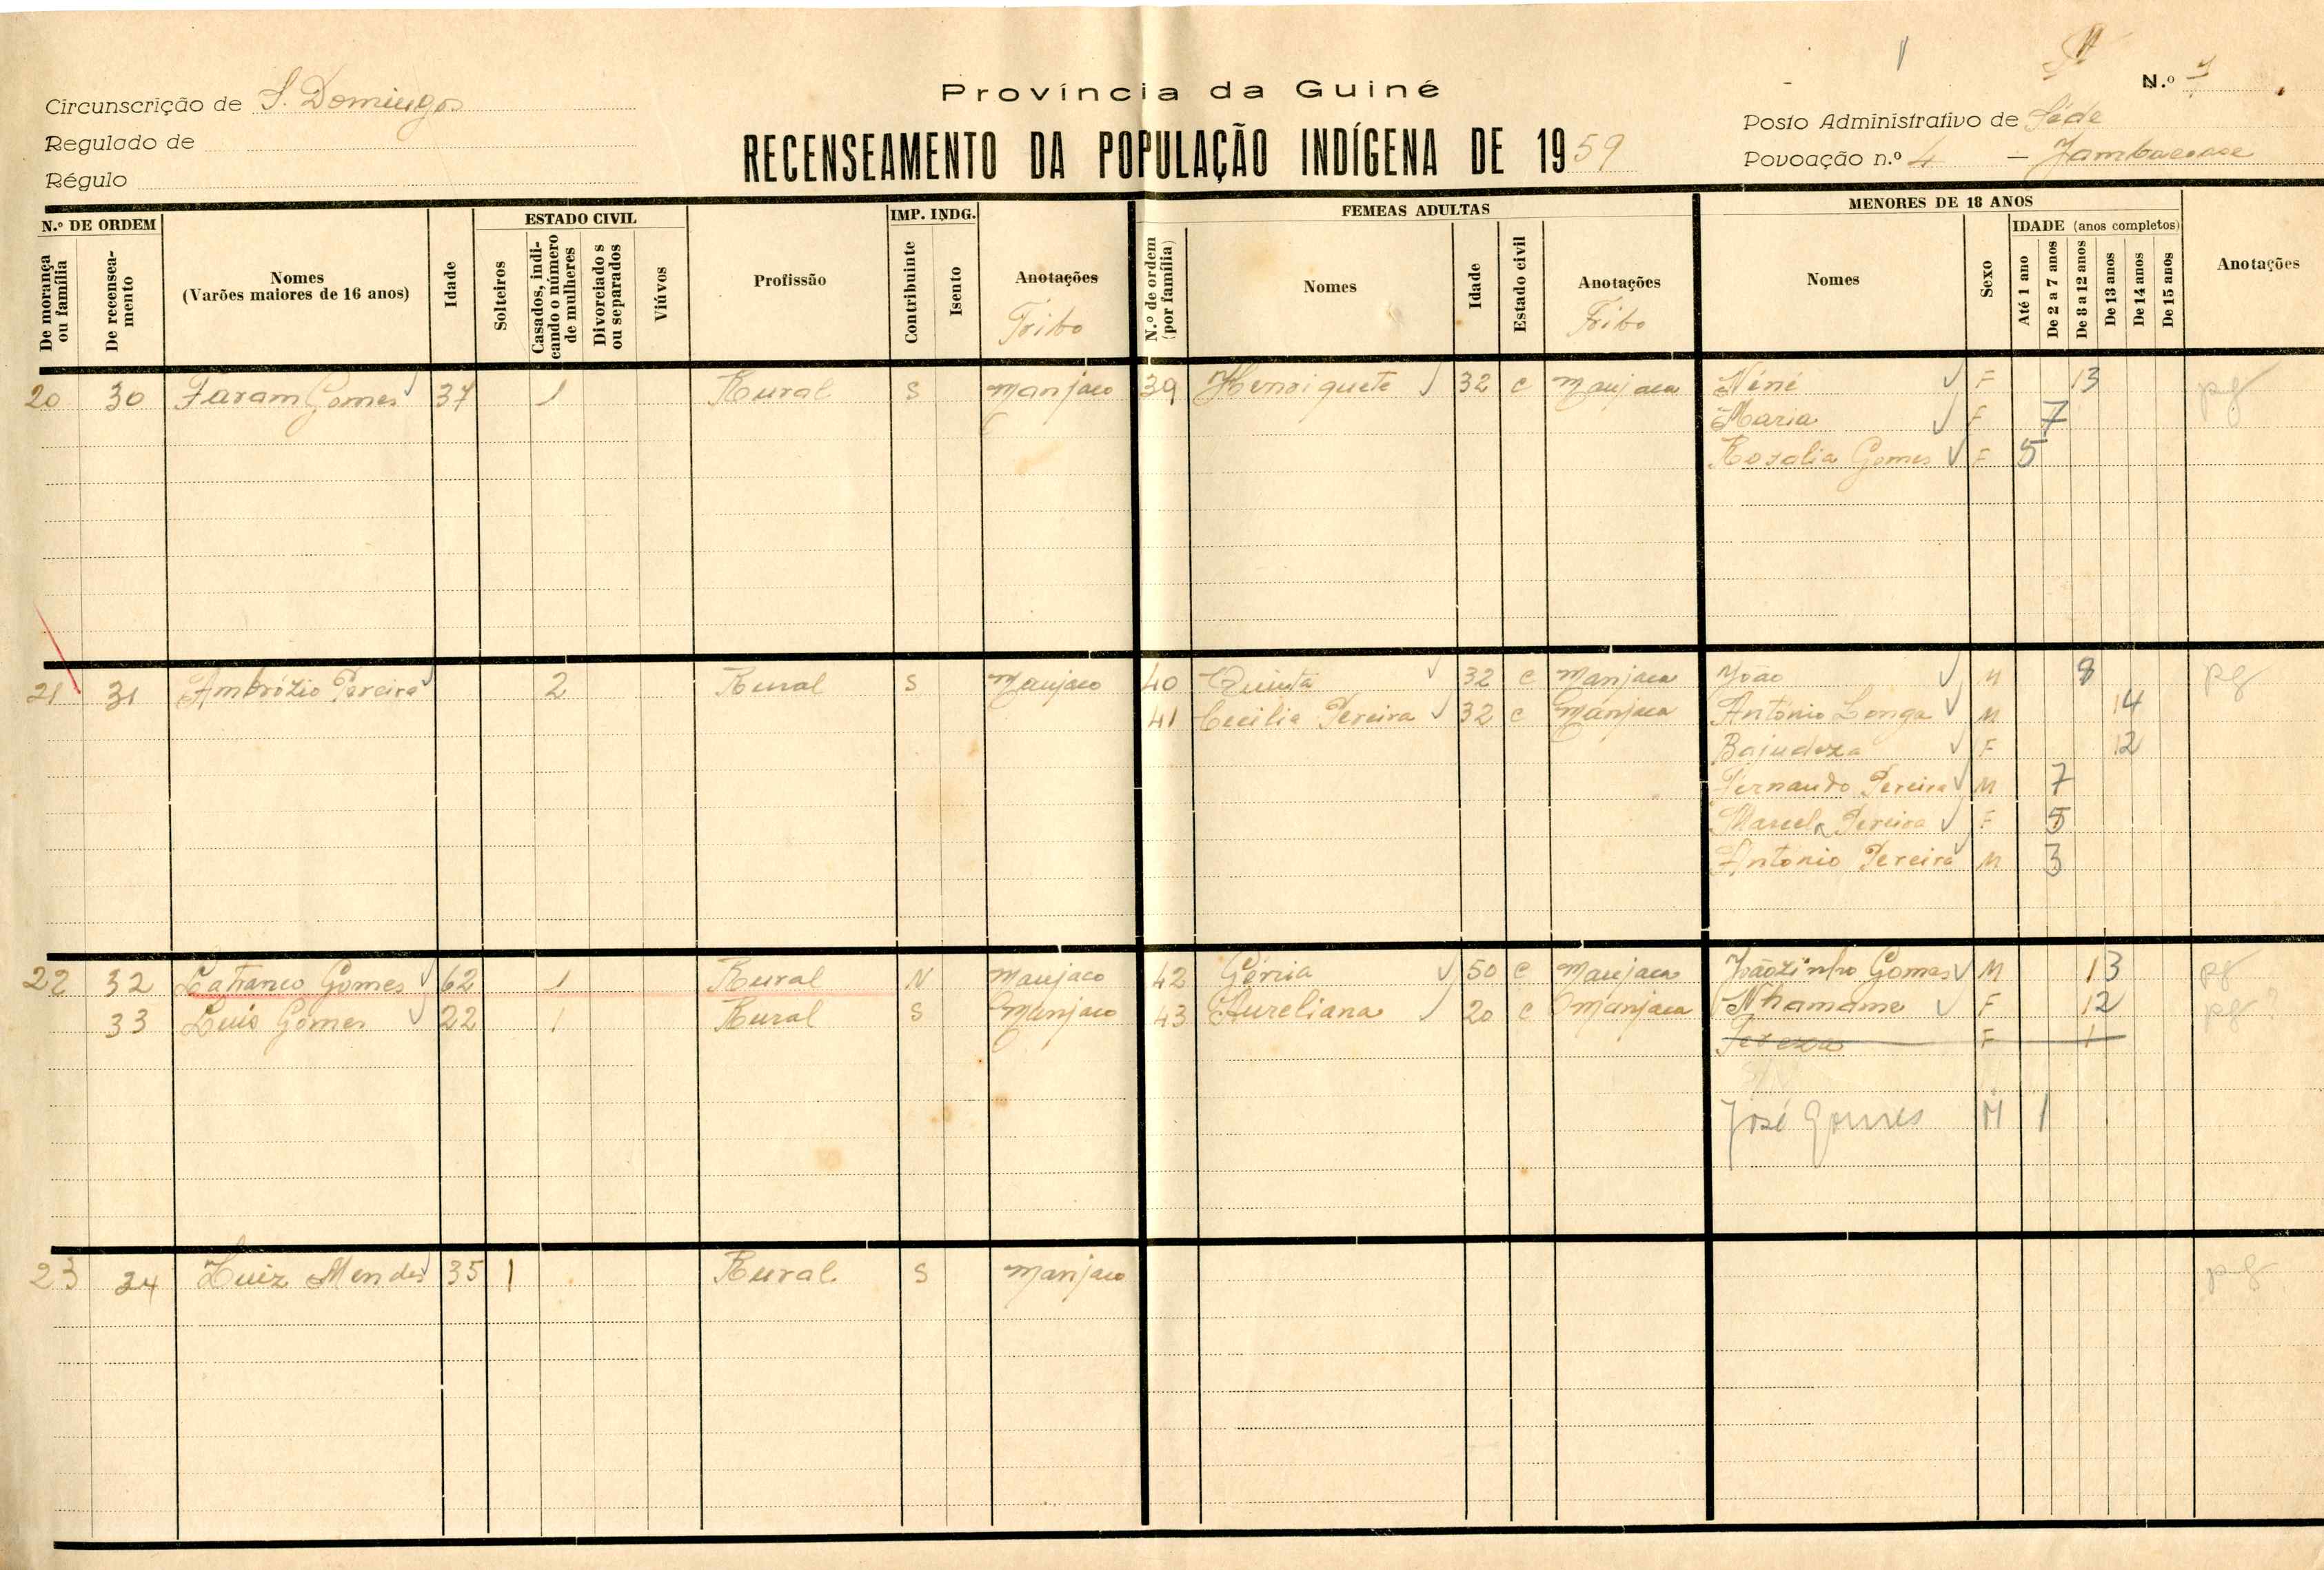 Província da Guiné
N.º
Circunscrição de S. Domingos
Regulado de
Régulo
RECENSEAMENTO DA POPULAÇÃO INDÍGENA DE 1959
Posto Administrativo de Séde
Povoação n.º 4 —
N.º DE ORDEM
De morança ou família
De recenseamento
Nomes
(Varões maiores de 16 anos)
Idade
ESTADO CIVIL
Solteiros
Casados, indicando o número de mulheres
Divorciados ou separados
Viúvos
Profissão
IMP. INDG.
Contribuinte
Isento
Anotações
Tribo
FEMEAS ADULTAS
N.º de ordem (por família)
Nomes
Idade
Estado civil
Anotações
Tribo
MENORES DE 18 ANOS
Nomes
Sexo
IDADE (anos completos)
Até 1 ano
De 2 a 7 anos
De 8 a 12 anos
De 13 anos
De 14 anos
De 15 anos
Anotações
20 30 Faram Gomes 37 1 Rural S Manjaco 39 Henriqueta 32 C Manjaca Néné F 13 pg
Maria F 7
Rosalia Gomes F 5
21 31 Ambrózio Pereira 2 Rural S Manjaco 40 Quinta 32 C Manjaca João M 8 pg
41 Cecilia Pereira 32 C Manjaca António Longa M 14
Bajudeza F 12
Fernando Pereira M 7
Marcela Pereira F 5
António Pereira M 3
22 32 Lafranco Gomes 62 1 Rural N Manjaco 42 50 C Manjaca Joãozinho Gomes M 13 pg
33 Luis Gomes 22 1 Rural S Manjaco 43 Aureliana 20 C Manjaca Nhamame F 12 pg ?
Tereza F 1
José Gomes M 1
23 34 Luiz Mendes 35 1 Rural S Manjaco pg